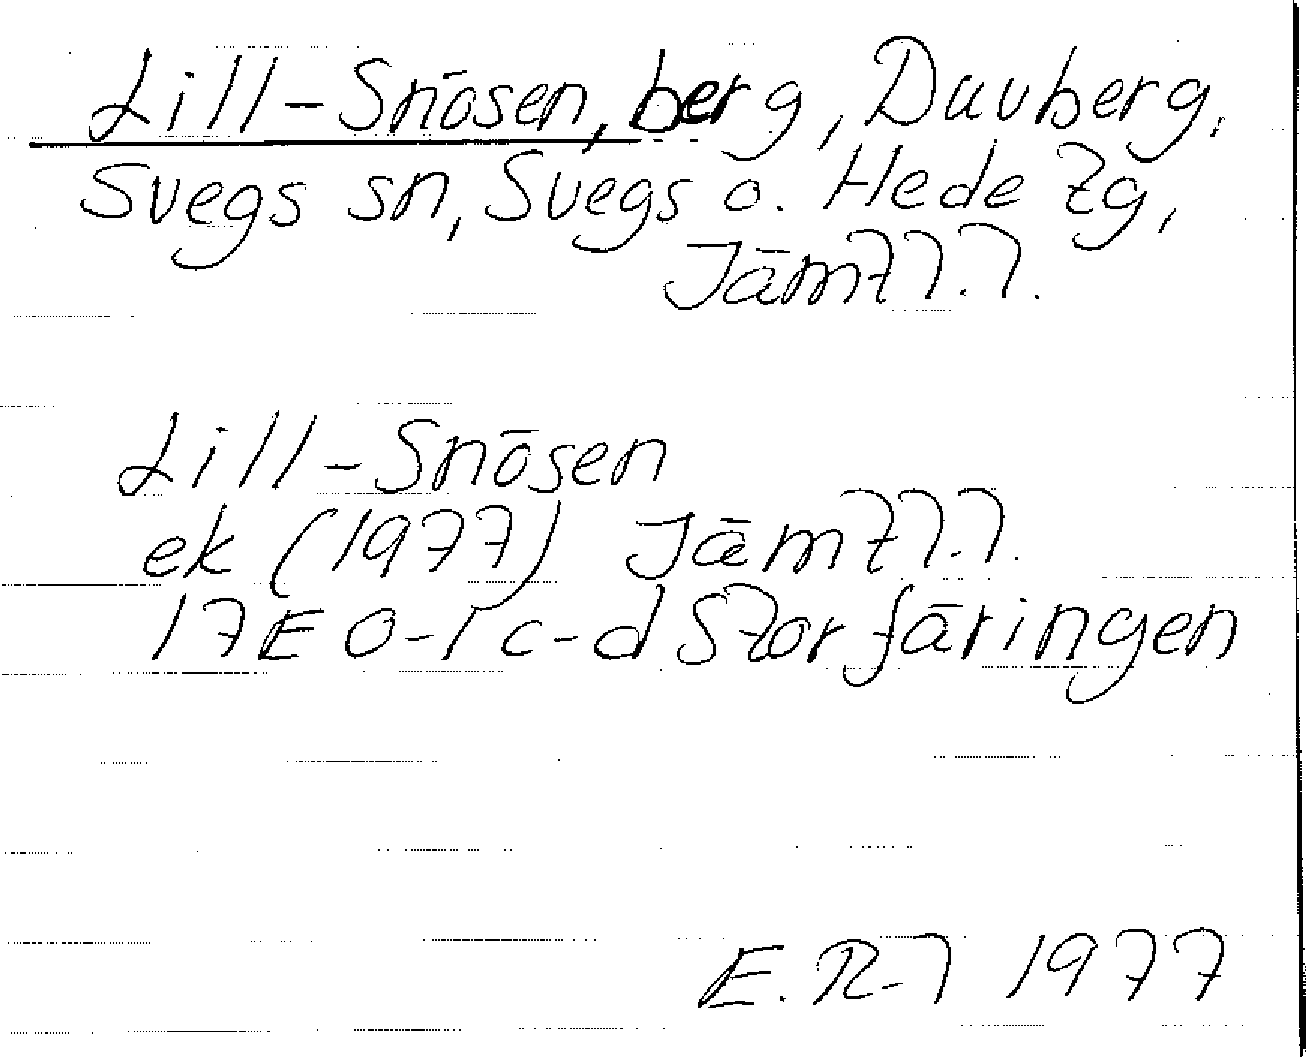 Lill-Snösen, berg, Duvberg,
Svegs sn, Svegs o. Hede tg,
Jämtl.l.
Lill-Snösen
ek (1977) Jämtl.l.
17E 0-1 c-d Storfäringen
E. R-l 1977